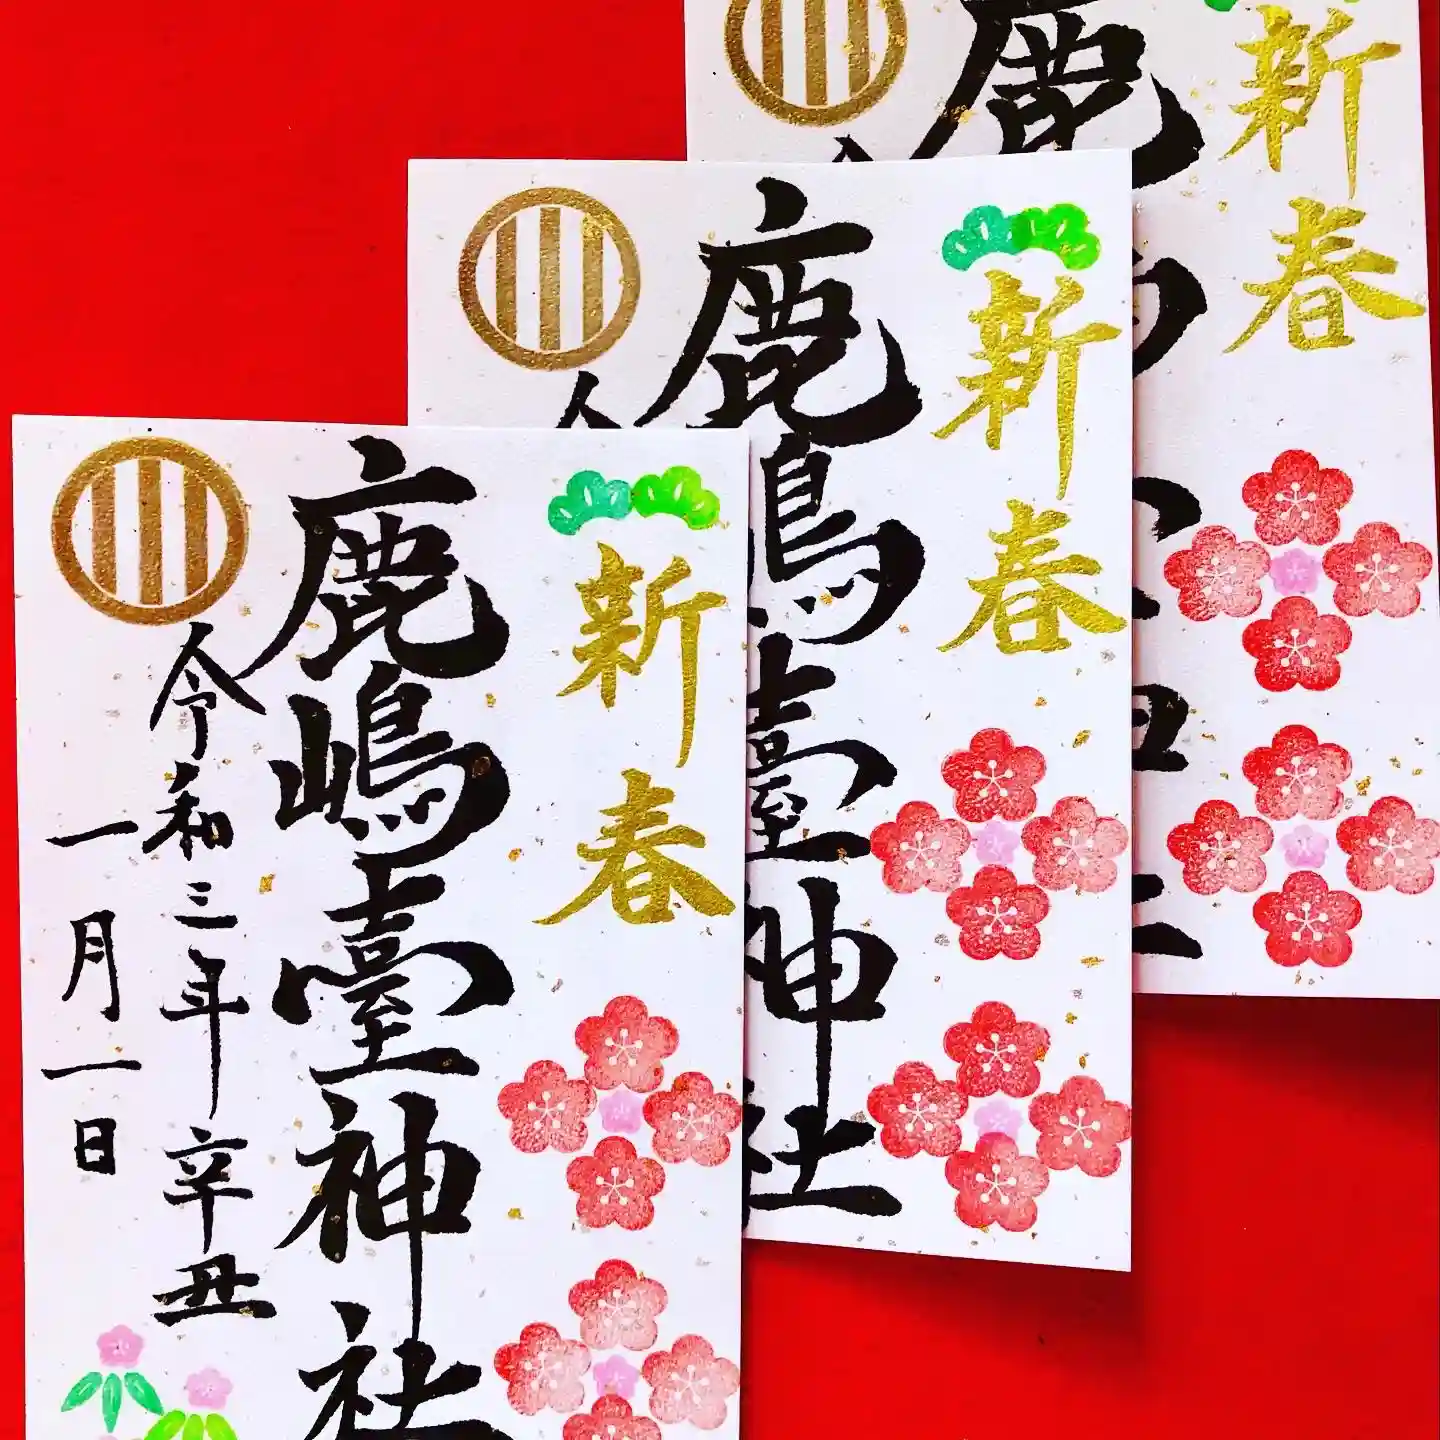 新春
鹿嶋臺神社
令和三年辛丑
一月一日
新春
鹿嶋臺神社
令
新春
鹿